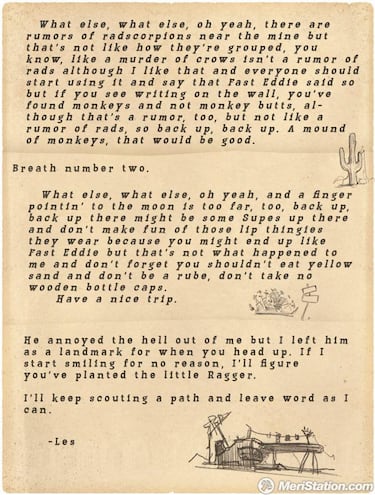 What else, what else, oh yeah, there are
rumors of radscorpions near the mine but
that's not like how they're grouped, you
know, like a murder of crows isn't a rumor of
rads although I like that and everyone should
start using it and say that Fast Eddie said so
but if you see writing on the wall, you've
found monkeys and not monkey butts, al-
though that's a rumor, too, but not like a
rumor of rads, so back up, back up. A mound
of monkeys, that would be good.
Breath number two.
What else, what else, oh yeah, and a finger
pointin' to the moon is too far, too, back up,
back up there might be some Supes up there
and don't make fun of those lip thingies
they wear because you might end up like
Fast Eddie but that's not what happened to
me and don't forget you shouldn't eat yellow
sand and don't be a rube, don't take no
wooden bottle caps.
Have a nice trip.
He annoyed the hell out of me but I left him
as a landmark for when you head up. If I
start smiling for no reason, I'll figure
you've planted the little Ragger.
I'll keep scouting a path and leave word as I
can.
-Les
MeriStation.com